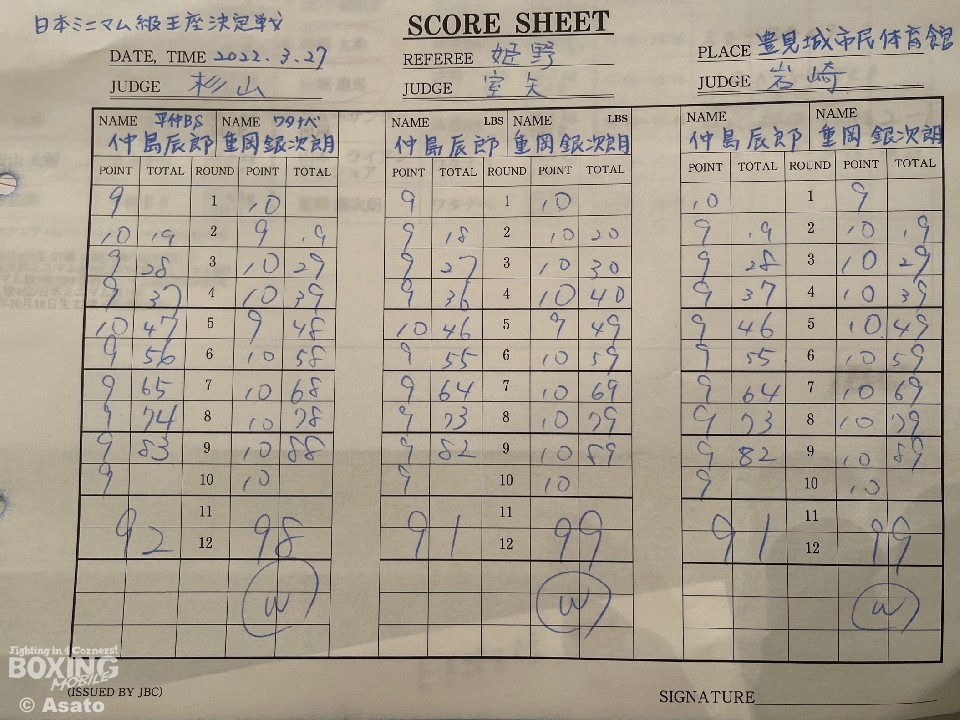 日本ミニマム級王座決定戦
SCORE SHEET
DATE, TIME 2022.3.27
REFEREE 姫野
PLACE 豊見城市民体育館
JUDGE 杉山
JUDGE 室矢
JUDGE 岩崎
NAME 平仲BS NAME ワタナベ NAME LBS NAME LBS NAME NAME
仲島辰郎 重岡銀次朗 仲島辰郎 重岡銀次朗 仲島辰郎 重岡銀次朗
POINT TOTAL ROUND POINT TOTAL POINT TOTAL ROUND POINT TOTAL POINT TOTAL ROUND POINT TOTAL
9 1 10 9 1 10 10 1 9
10 19 2 9 19 9 18 2 10 20 9 19 2 10 19
9 28 3 10 29 9 27 3 10 30 9 28 3 10 29
9 37 4 10 39 9 36 4 10 40 9 37 4 10 39
10 47 5 9 48 10 46 5 9 49 9 46 5 10 49
9 56 6 10 58 9 55 6 10 59 9 55 6 10 59
9 65 7 10 68 9 64 7 10 69 9 64 7 10 69
9 74 8 10 78 9 73 8 10 79 9 73 8 10 79
9 83 9 10 88 9 82 9 10 89 9 82 9 10 89
9 10 10 9 10 10 9 10 10
11 11 11
92 12 98 91 12 99 91 12 99
W W W
Fighting in 4 Corners!
BOXING
MOBILE
(ISSUED BY JBC)
© Asato
SIGNATURE